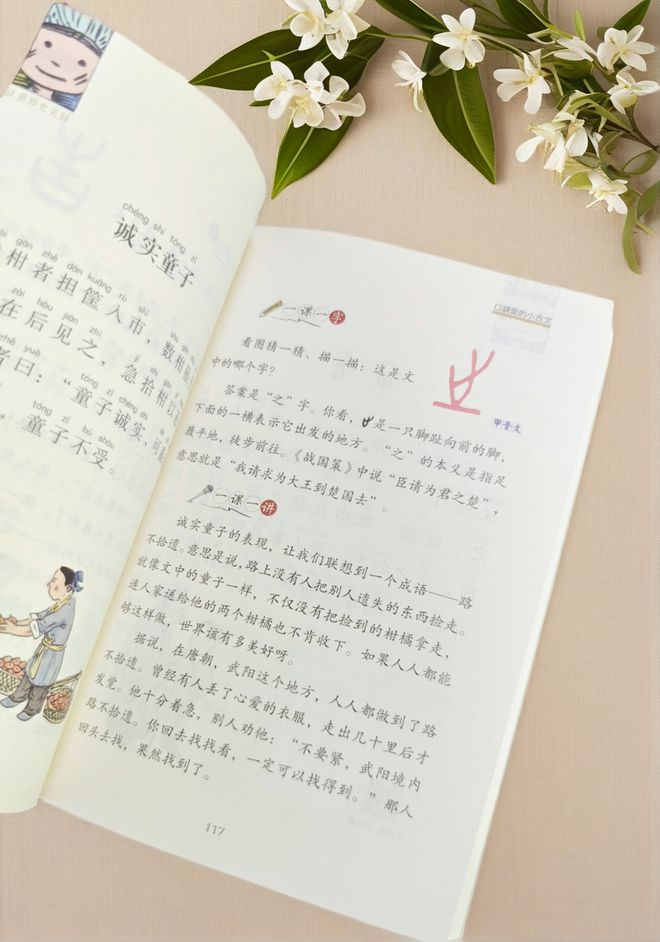 chéng shí tóng zǐ
诚实童子
gān zhě dān kuāng rù shì shǔ gān
柑者担筐入市，数柑
zài hòu jiàn zhī jí shí gān
在后见之，急拾柑以
zhě yuē tóng zǐ chéng shí
者曰：“童子诚实，可
tóng zǐ bú shòu
童子不受。
口袋里的小古文
一课一字
看图猜一猜、描一描：这是文
中的哪个字？
甲骨文
答案是“之”字。你看，是一只脚趾向前的脚，
下面的一横表示它出发的地方。“之”的本义是指足
履平地，徒步前往。《战国策》中说“臣请为君之楚”，
意思就是“我请求为大王到楚国去”。
一课一讲
诚实童子的表现，让我们联想到一个成语——路
不拾遗。意思是说，路上没有人把别人遗失的东西捡走。
就像文中的童子一样，不仅没有把捡到的柑橘拿走，
连人家送给他的两个柑橘也不肯收下。如果人人都能
够这样做，世界该有多美好呀。
据说，在唐朝，武阳这个地方，人人都做到了路
不拾遗。曾经有人丢了心爱的衣服，走出几十里后才
发觉。他十分着急，别人劝他：“不要紧，武阳境内
路不拾遗。你回去找找看，一定可以找得到。”那人
回头去找，果然找到了。
117